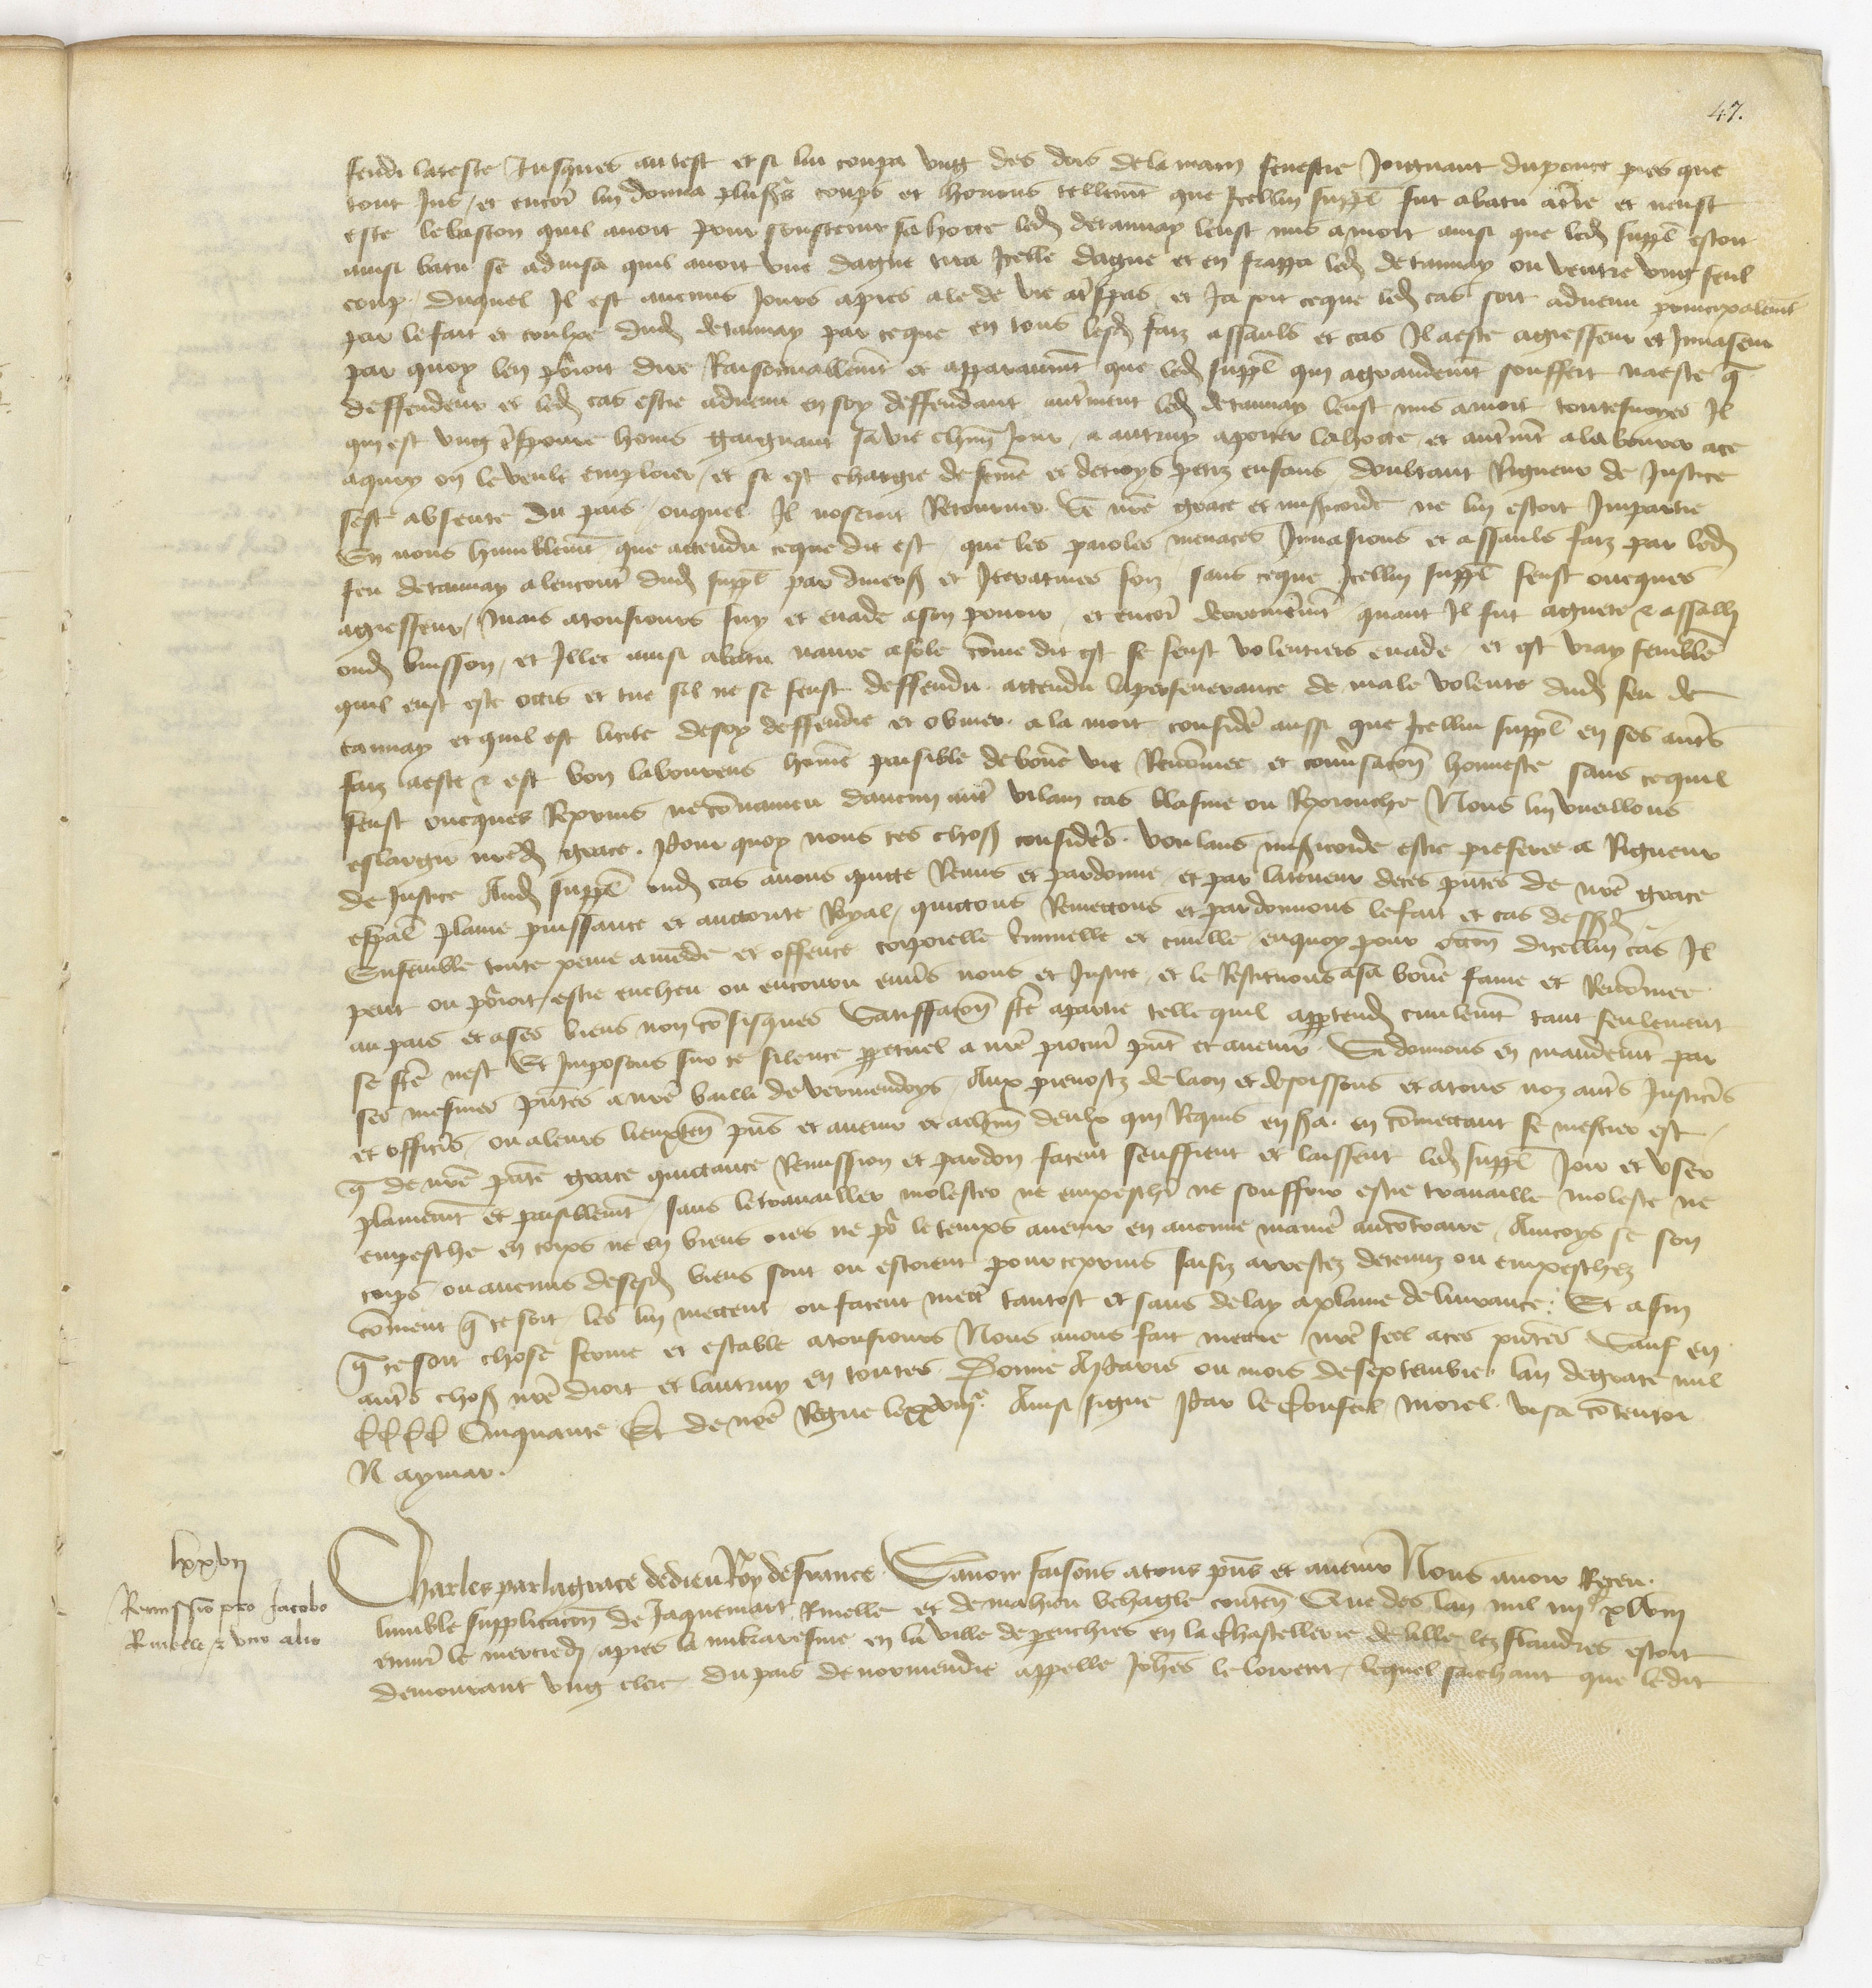 47.
fendi la teste Jusques au test et si lui coupa ung des dois de la main senestre Joignant du pouce pres que
tout Jus, et encor lui donna plus's coups et horions tellemt que Icellui suppl fut abatu a tre et neust
este le baston quil avoit pour soustenir sa hotte led de tannay leust mis a mort ainsi que led suppl estoit
ainsi batu se advisa quil avoit une dague tira Icelle dague et en frappa led de tannay ou ventre ung seul
coup. Duquel Il est aucuns Jours apres ale de vie a trespas et Ja soit ce que led cas soit advenu principalemt
par le fait et coulpe dud de tannay par ce que en tous lesd faiz assauls et cas Il a este agresseur et Invaseur
par quoy len porroit dire Raisonnablemt et apparaumt que led suppl qui a grandemt souffert na este q
deffendeur et led cas estre advenu en soy deffendant autrement led de tannay leust mis a mort toutesvoyes Il
qui est ung povre homs gaignant sa vie chun Jour, a autruy a porter la hotte et autremt a labourer a ce
a quoy on le veult emploier, et si est chargie de feme et de troys petiz enfans, doubtant Rigueur de Justice
sest absente du pais, ouquel Il noseroit Retourner. Se nre grace et misericorde ne lui estoit Impartie
En nous humblemt que attendu ce que dit est que les paroles menaces Invasions et assauls faiz par led
feu de tannay a lencontre dud suppl par diverses et Iteratives foiz sans ce que Icellui suppl feust oncques
agresseur, mais a tousjours fuy et evade a son povoir, et encor derrenieremt quant Il fut aguete & assailly
oud buisson, et Illec ainsi abatu navre afole come dit est se feust volentiers evade, et est vray semble
quil eust este occis et tue sil ne se feust deffendu attendu la perseverance de male volente dud feu de
tannay et quil est licite de soy deffendre et obvier a la mort consider aussi que Icellui suppl en ses autrs
faiz a este & est bon laboureus home paisible de bone vie Renomee et conversacon honneste sans ce quil
feust oncques Reprins ne convaincu daucun autr vilain cas blasme ou Reprouche Nous lui vueillons
eslargir nred grace. Pour quoy nous ces choses considers. voulans misericorde estre preferee a Rigueur
de Justice Aud suppl oud cas avons quitte Remis et pardonne et par la teneur de ces pntes de nre grace
especal plaine puissance et auctorite Royal, quittons Remettons et pardonnons le fait et cas dessd
Ensemble toute peine amende et offence corporelle criminelle et civille, en quoy pour occon dicellui cas Il
peut ou porroit estre encheu ou encouru envers nous et Justice, et le Restituons a sa bone fame et Renomee
au pais et a ses biens non confisques Satisfacon fce a partie telle quil appartendra civilemt tant seulement
se fce nest Et Imposons sur ce silence perpetuel a nre procur pnt et avenir. Si donnons en mandemt par
ces mesmes pntes a nre bailli de vermendoys, Aux prevostz de laon et de soissons et a tous noz autrs Justicrs
et officrs, ou a leurs lieuxten pns et avenir et a chun deulx qui Requis en sera. en comettant se mestier est,
q de nre pnte grace quittance Remission et pardon facent seuffrent et laissent led suppl Joir et user
plainemt et paisiblemt, sans le travailler molester ne empeschr ne souffrir estre travaille moleste ne
empesche en corps ne en biens ores ne pr le temps avenir en aucune manier au contraire, Aincoys se son
corps ou aucuns de sesd biens sont ou estoient pour ce prins saisiz arrestez detenuz ou empeschez
coment q ce soit, les lui mettent ou facent mectr tantost et sans delay a plaine delivrance. Et afin
q ce soit chose ferme et estable a tousjours Nous avons fait mettre nre seel a ces pntes Sauf en
autrs choses nre droit et lautruy en toutes Donne A Paris ou mois de septembre. lan de grace mil
CCCC Cinquante Et de nre Regne le xxviiie. Ainsi signe Par le Conseil Morel. visa contentor
N aymar.
lxxvii
Remissio pro Jacobo
Rmelle & uno alio
Charles par la grace de dieu Roy de france. Savoir faisons a tous pns et avenir Nous avoir Receu.
lumble supplicacon de Jaquemart Rmelle et de mahieu behagle conten Que des lan mil iiiic xlviii
environ le mercredi apres la mikaresme en la ville de penchies en la Chastellerie de lille lez flandres estoit
demourant ung clerc du pais de normendie appelle Johes le lorrent, lequel sachant que ledit